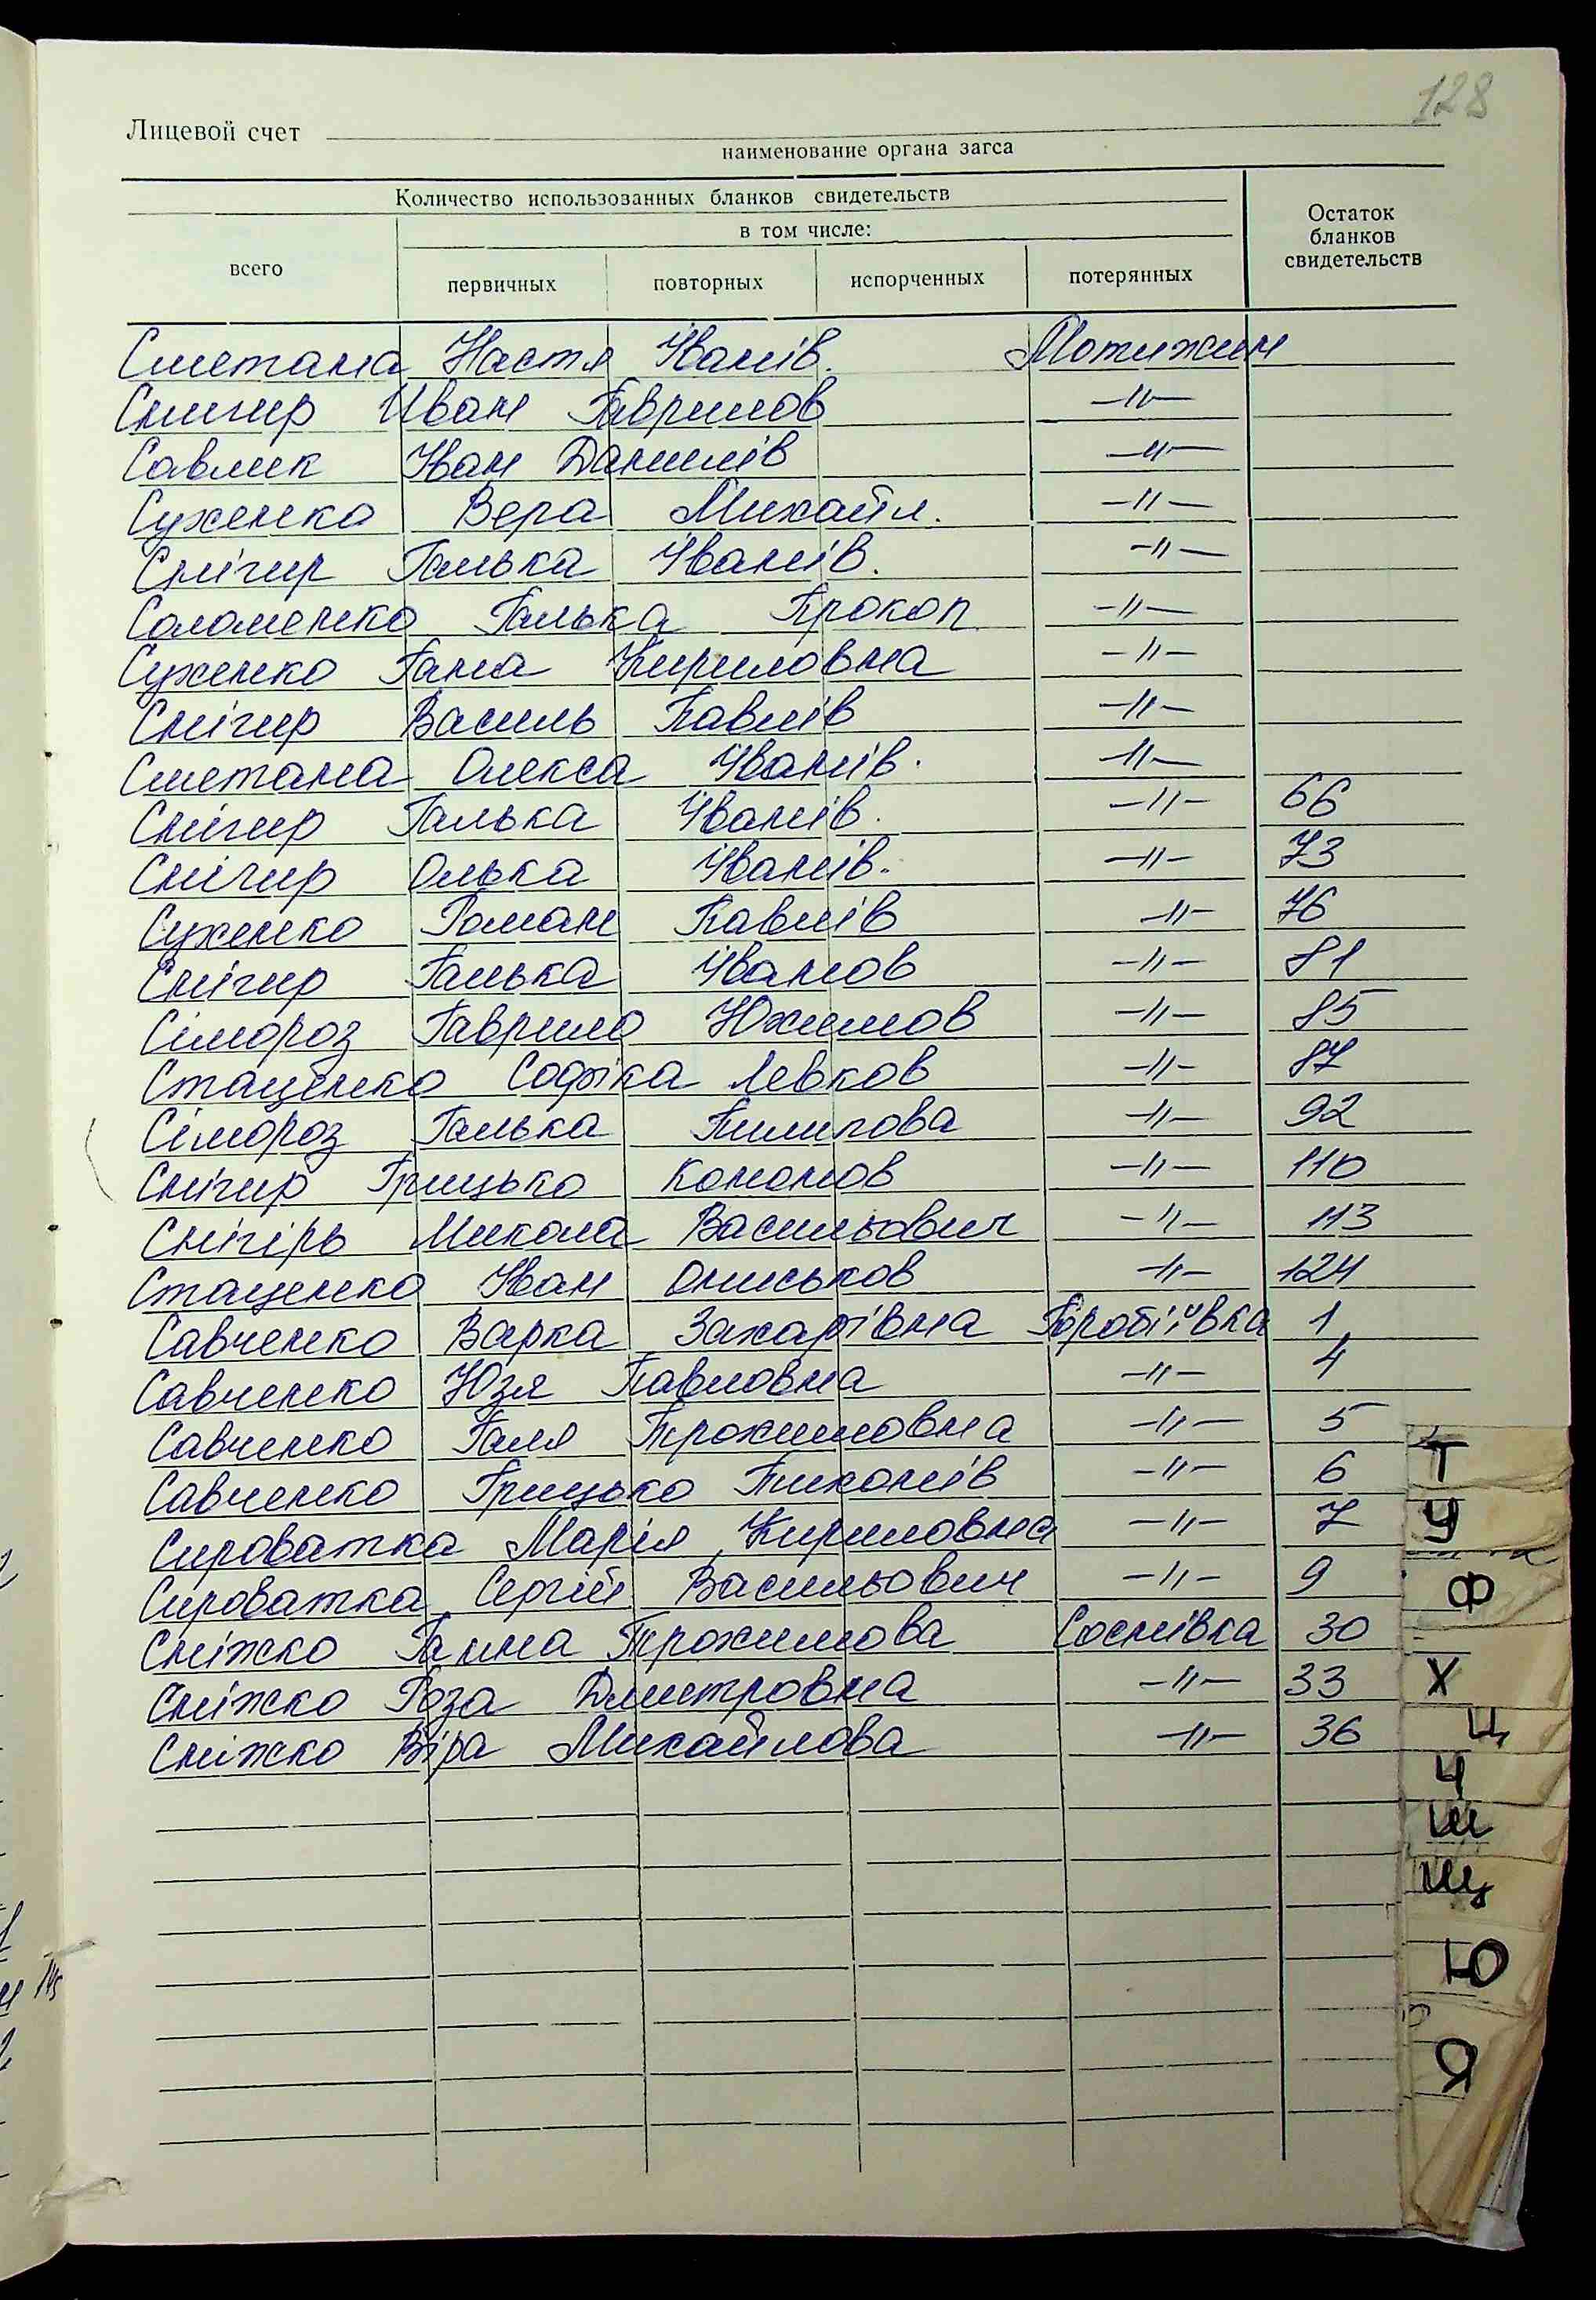 128
Лицевой счет
наименование органа загса
Количество использованных бланков свидетельств
в том числе:
Остаток бланков свидетельств
всего первичных повторных испорченных потерянных
Сметана Настя Іванів. Мотижин
Снигир Иван Гаврилов —"—
Савлик Іван Данилів —"—
Сухенко Вера Михайл. —"—
Снігир Галька Іванів. —"—
Соломенко Галька Прокоп —"—
Сухенко Гана Кириловна —"—
Снігир Василь Павлів —"—
Сметана Олекса Іванів. —"—
Снігир Галька Іванів. —"— 66
Снігир Олька Іванів. —"— 73
Сухенко Роман Павлів —"— 76
Снігир Галька Іванов —"— 81
Сімороз Гаврило Юхимов —"— 85
Стаценко Софіка Левков —"— 87
Сімороз Галька Пилипова —"— 92
Снігир Грицько Кононов —"— 110
Снігірь Микола Васильович —"— 113
Стаценко Іван Ониськов —"— 124
Савченко Варка Захарівна Горобіївка 1
Савченко Юзя Павловна —"— 4
Савченко Галя Трохимовна —"— 5
Савченко Грицько Тихонів —"— 6
Сироватка Марія Кириловна —"— 7
Сироватка Сергій Васильович —"— 9
Сніжко Ганна Трохимова Соснівка 30
Сніжко Роза Дмитровна —"— 33
Сніжко Віра Михайлова —"— 36
Т
У
Ф
Х
Ц
Ч
Ш
Щ
Ю
Я